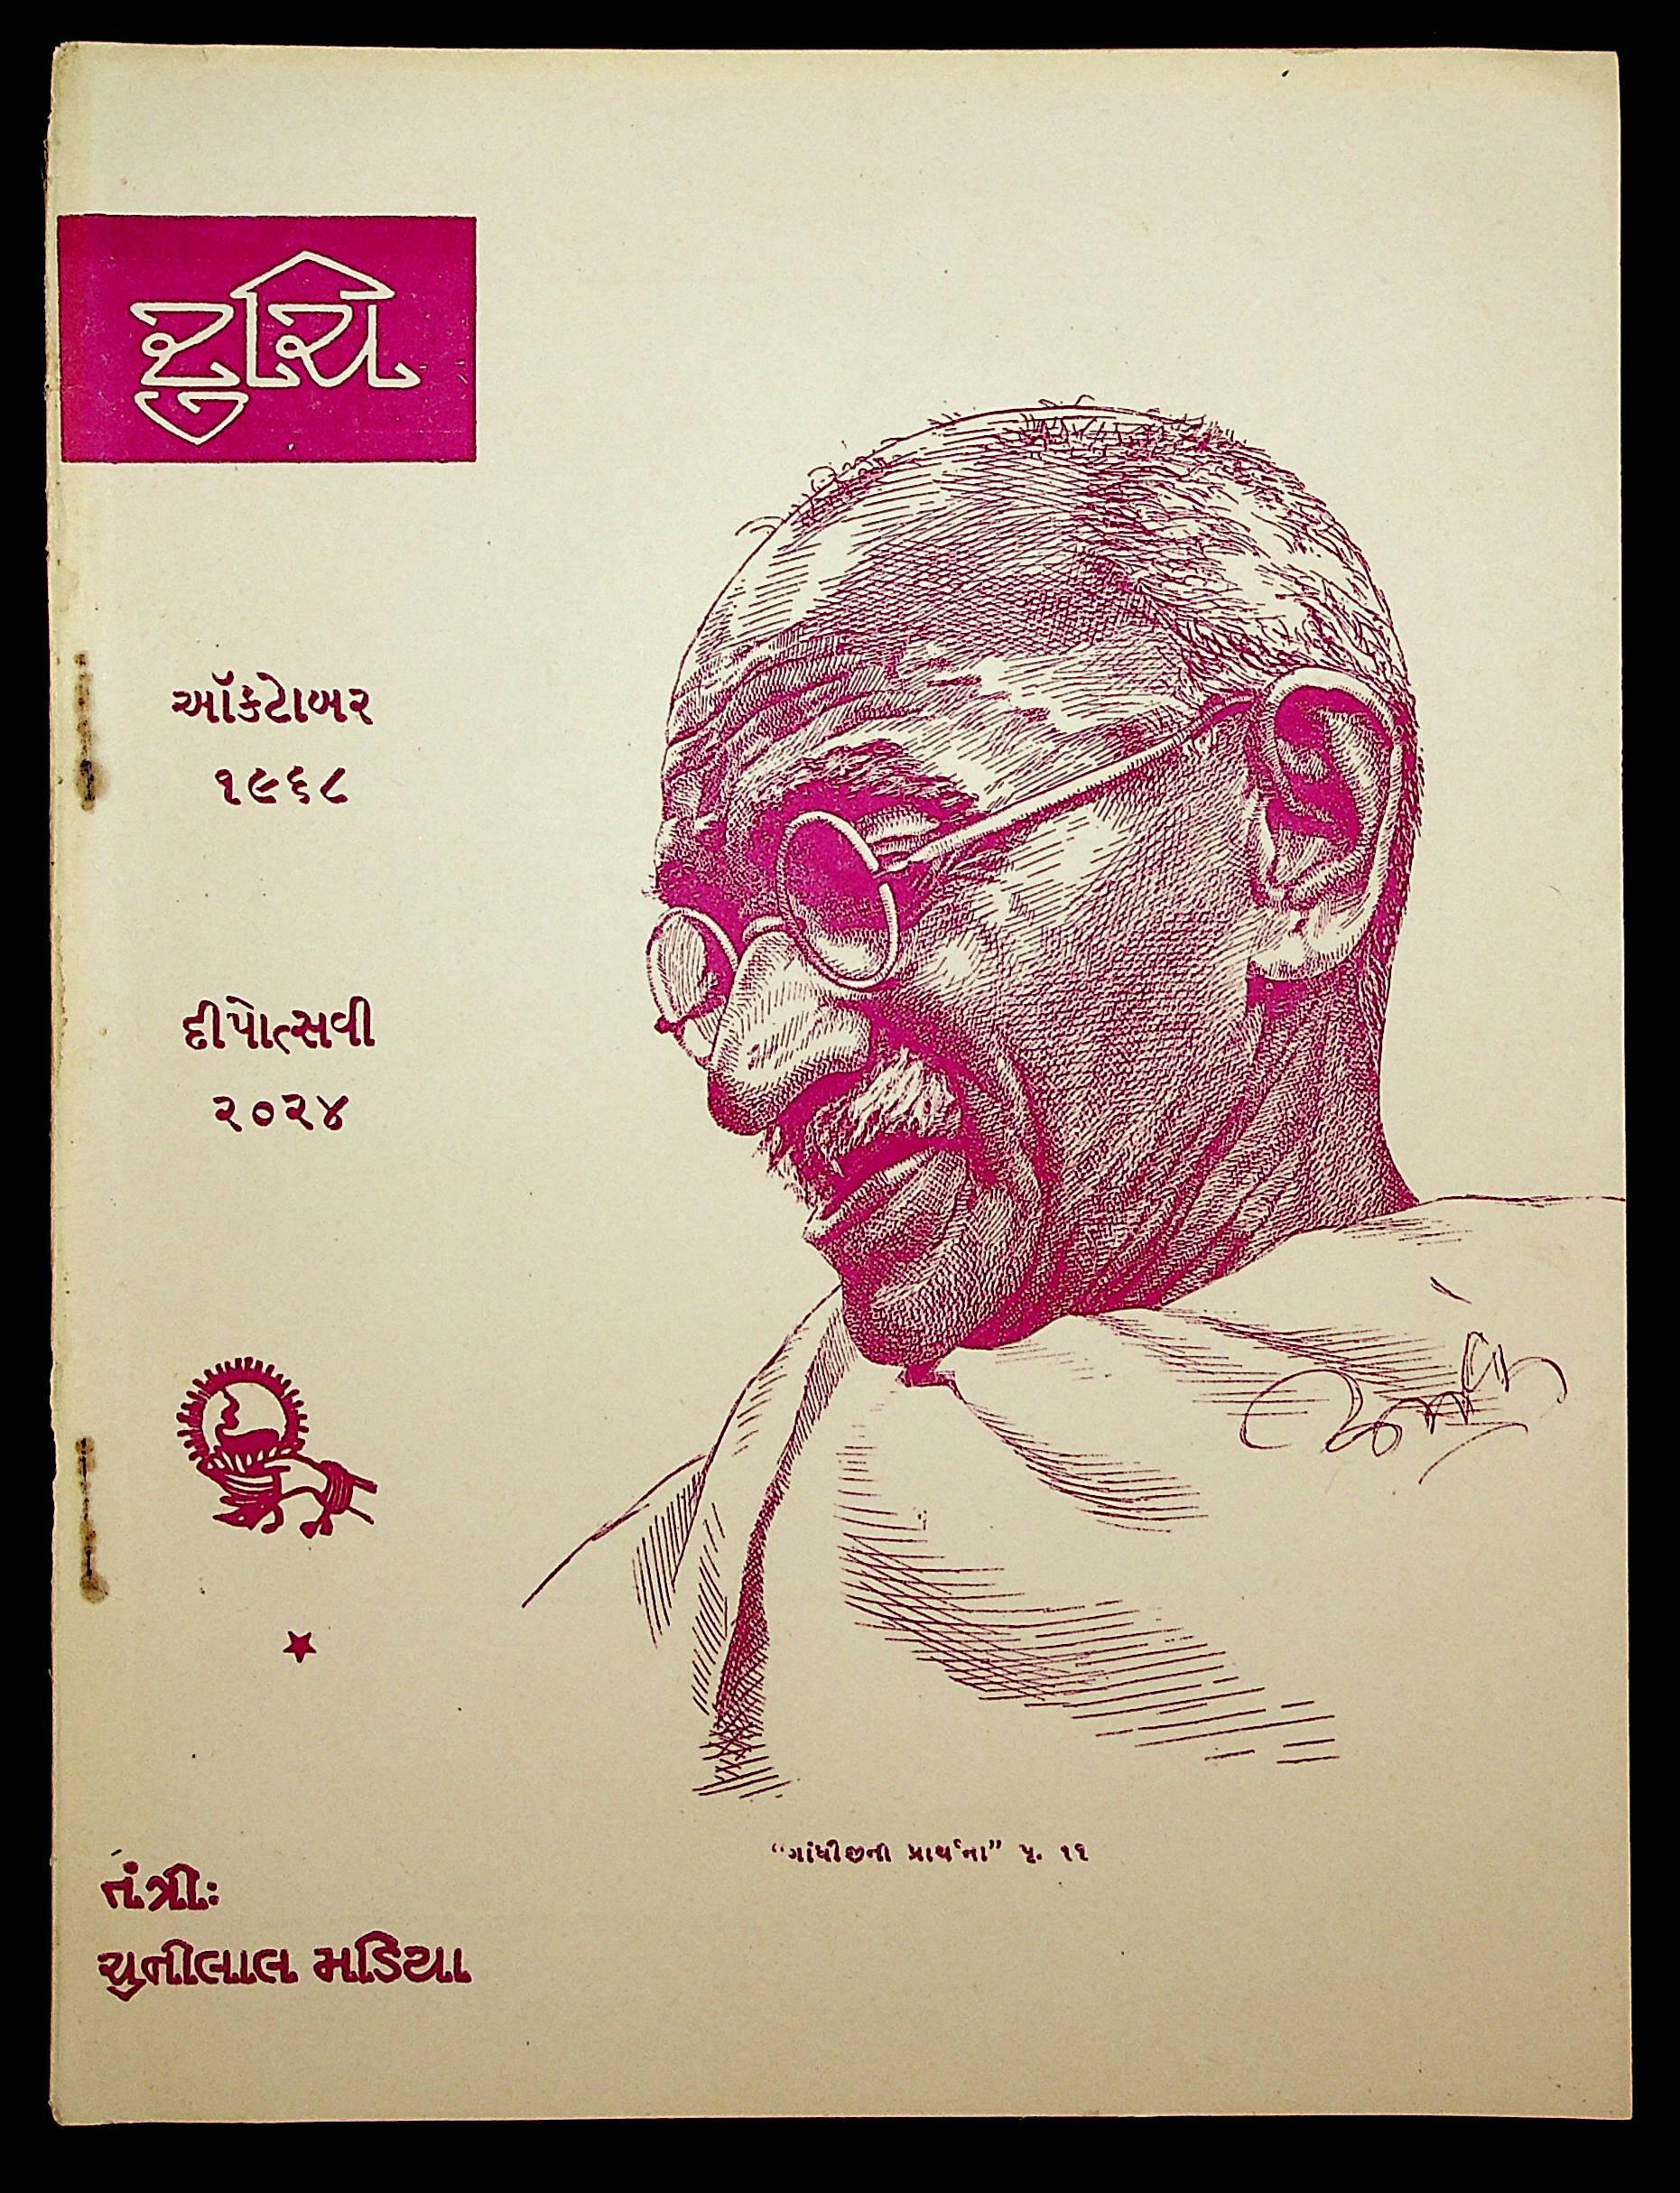 રુચિ
ઑક્ટોબર
૧૯૬૮
દીપોત્સવી
૨૦૨૪
“ગાંધીજીની પ્રાર્થના” પૃ. ૧૬
તંત્રી:
ચુનીલાલ મડિયા